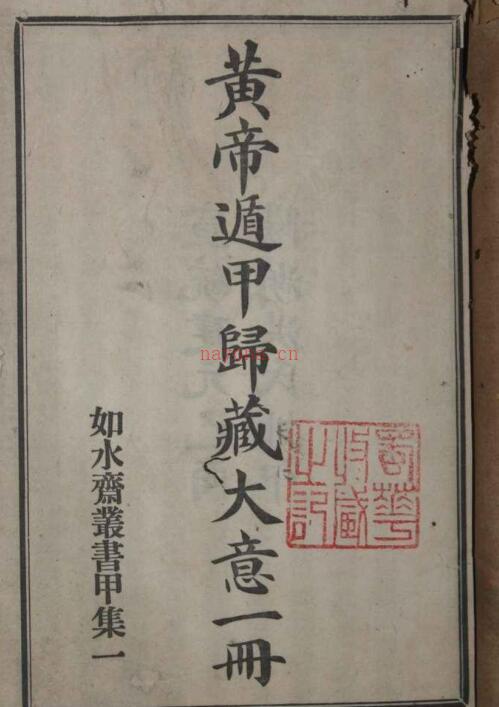 黃帝遁甲歸藏大意一冊
如水齋叢書甲集一
nayona.cn